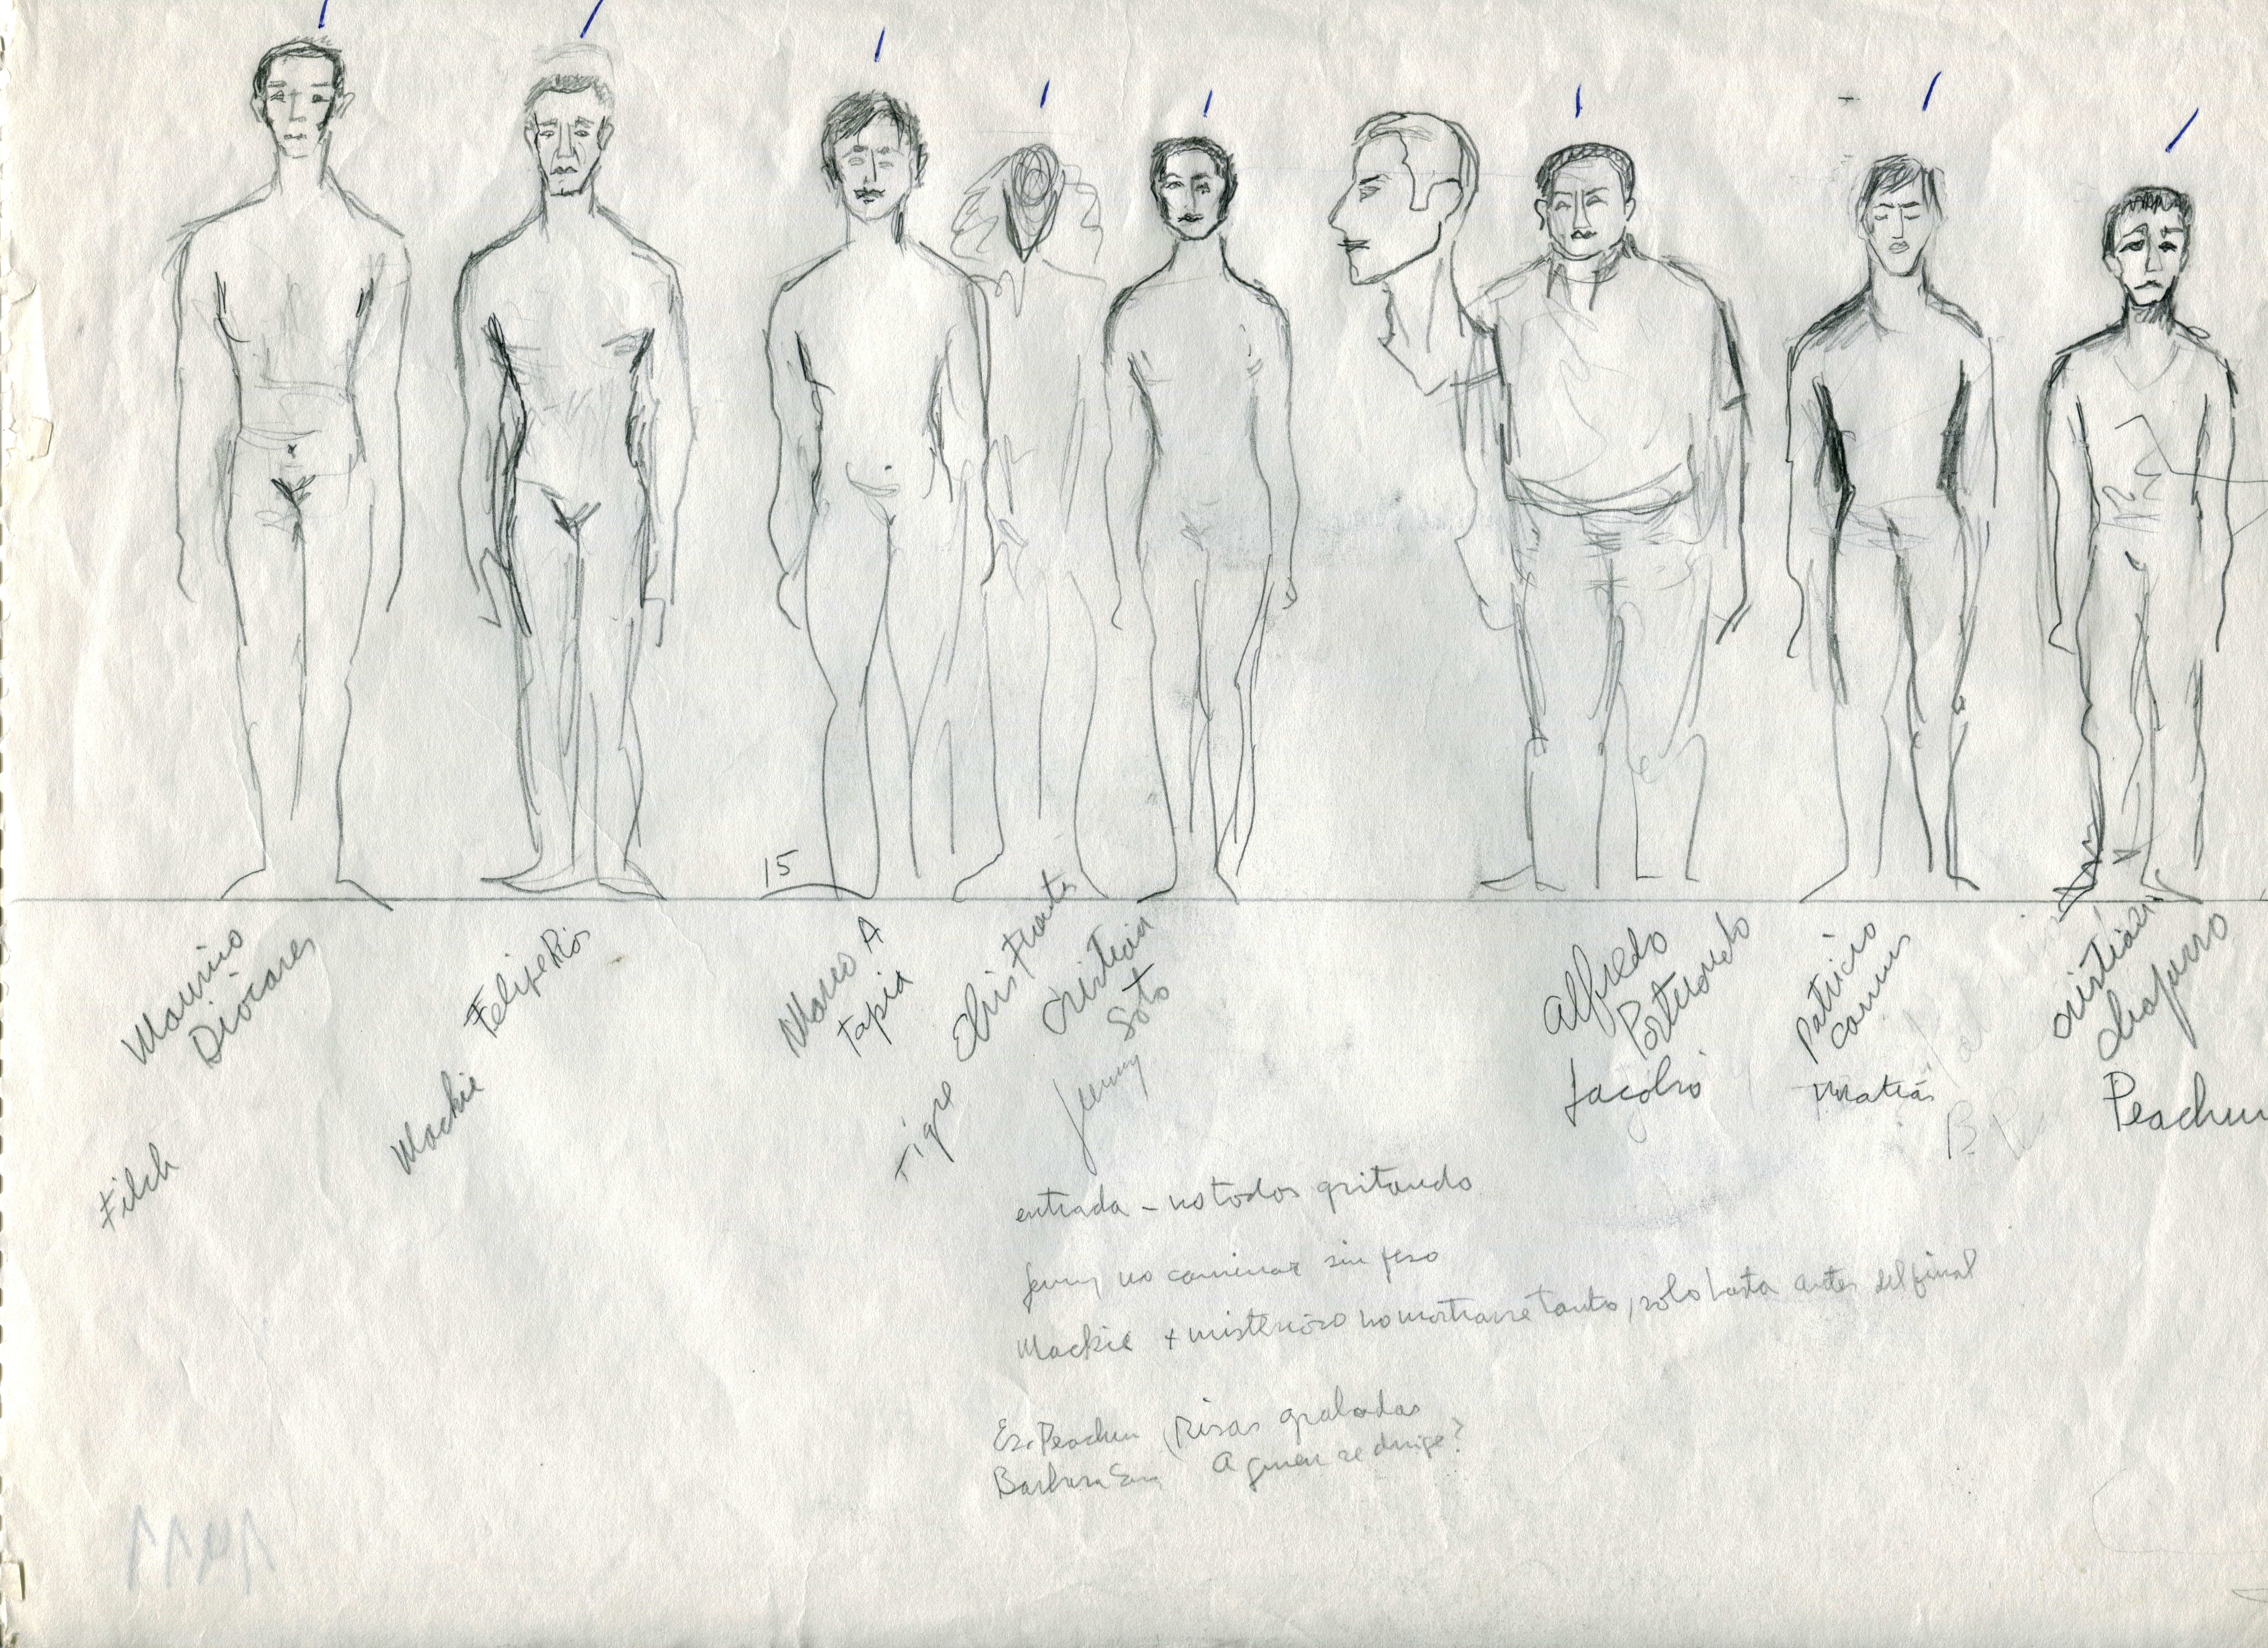 15
Mauricio
Diocares
Filch
Felipe Rios
Mackie
Marco A
Tapia
Tigre
Cristian
Soto
Jenny
Alfredo
Portuondo
Jacobo
Patricio
Camus
Matias
cristián
chaparro
Peachum
entrada - no todos gritando
Jenny no caminar sin peso
Mackie + misterioso no mostrarse tanto, solo hasta antes del final
Es. Peachum (Risas grabadas
Barbara A quien se dirige?